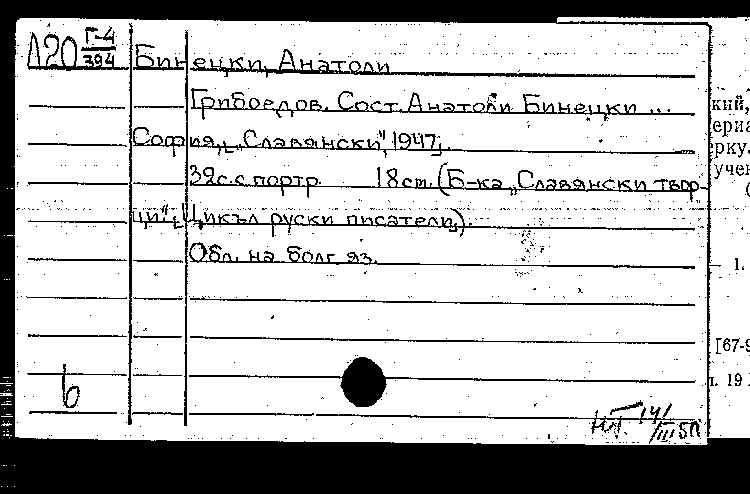 Л20 Г-4/394
Бинецки, Анатоли
Грибоедов. Сост. Анатоли Бинецки ...
София, „Славянски“, 1947.
32с. с портр. 18 cm. (Б-ка „Славянски твор-
ци“. Цикъл руски писатели).
Обл. на болг. яз.
b
кий,
ериа
рку.
учен
1.
[67-9
19